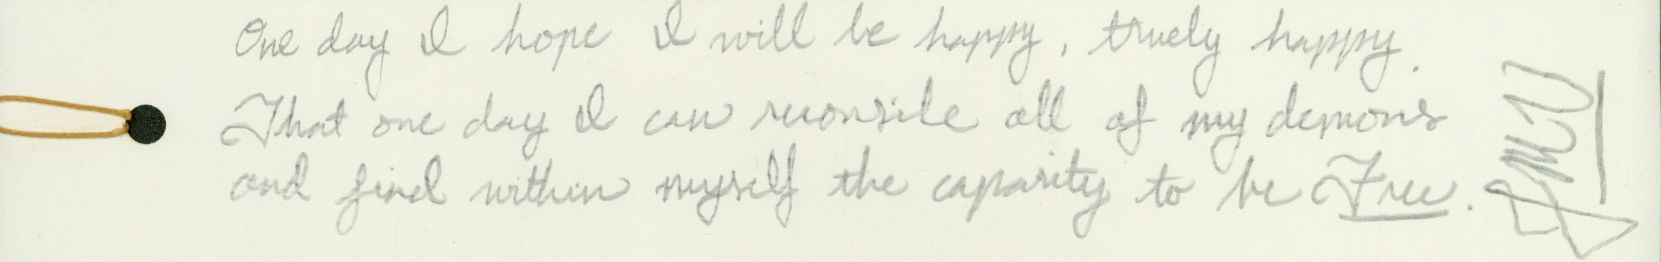 One day I hope I will be happy, truely happy.
That one day I can reconsile all of my demons
and find within myself the capasity to be Free.